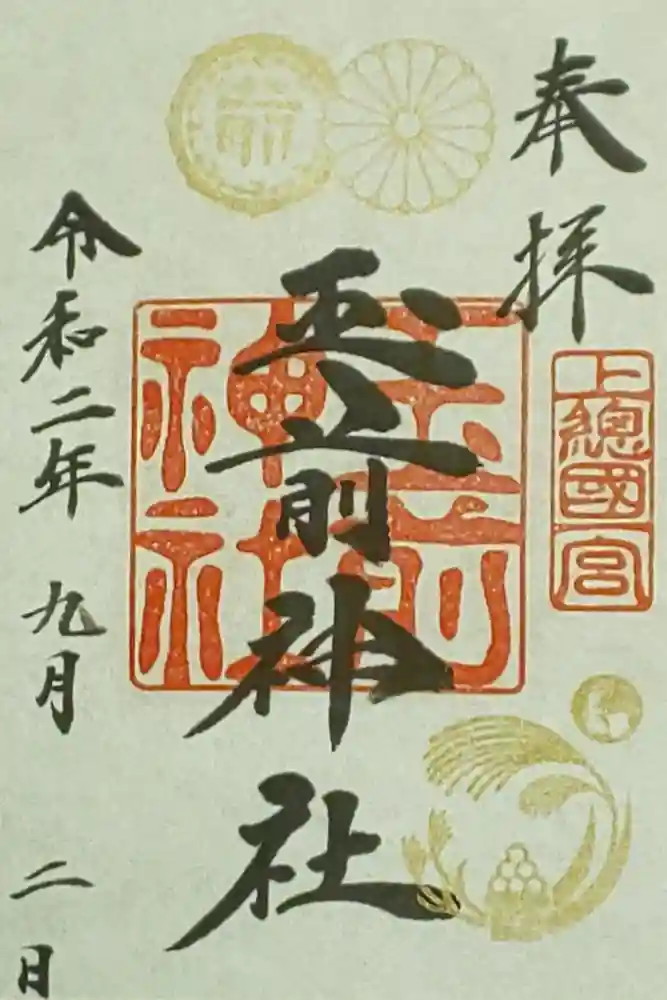 奉拝
上總國一宮
玉前神社
玉前神社
令和二年 九月 二日